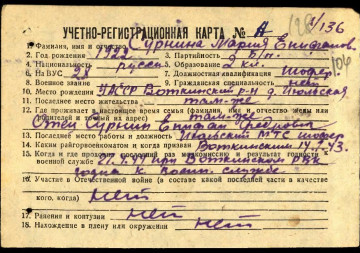 1/136
УЧЕТНО-РЕГИСТРАЦИОННАЯ КАРТА № А
104
1. Фамилия, имя и отчество Сурнина Мария
2. Год рождения 1923 3. Партийность б/п.
4. Национальность русск 5. Образование 2 кл.
6. На ВУС 28 7. Должностная квалификация шофер
8. Военное звание
10. Место рождения УАССР Воткинский р-н д.
11. Последнее место жительства там-же
12. Где проживает в настоящее время семья (фамилия, имя и отчество жены или
родителей и точный их адрес) там-же
Отец Сурнин
14. Последнее место работы и должность МТС шофер
14. Каким райгорвоенкоматом и когда призван Воткинским 43.
15. Когда и где проходил последний раз комиссию и результат годности
военной службе при Воткинском РВК
годна к воен. службе
16. Участие в Отечественной войне (в составе какой последней части в качестве
кого, когда) нет
17. Ранения и контузии нет
18. Нахождение в плену или окружении нет